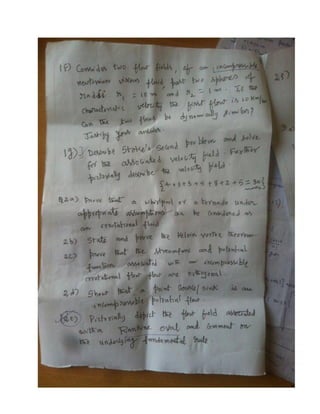 1f) Consider two flow fields, of an incompressible
newtonian viscous fluid, past two spheres of
radii r1 = 10 m and r2 = 1 m. If the
characteristic velocity the first flow is 10 km/hr
Can the two flow be dynamically similar?
Justify your answer.
1g) Describe Stoke's second problem and solve
for the associated velocity field. Further
pictorially describe the velocity field
= 30
Q2a) Prove that a whirlpool or a tornado under
appropriate assumptions can be considered as
an irrotational fluid
2b) State and prove the Kelvin vortex theorem
2c) Prove that the streamlines and potential
function associated with an incompressible
irrotational flow are orthogonal.
2d) Show that a point source/sink is an
incompressible potential flow
2e) Pictorially depict the flow field associated
within Rankine oval and comment on
the underlying fundamental
25)